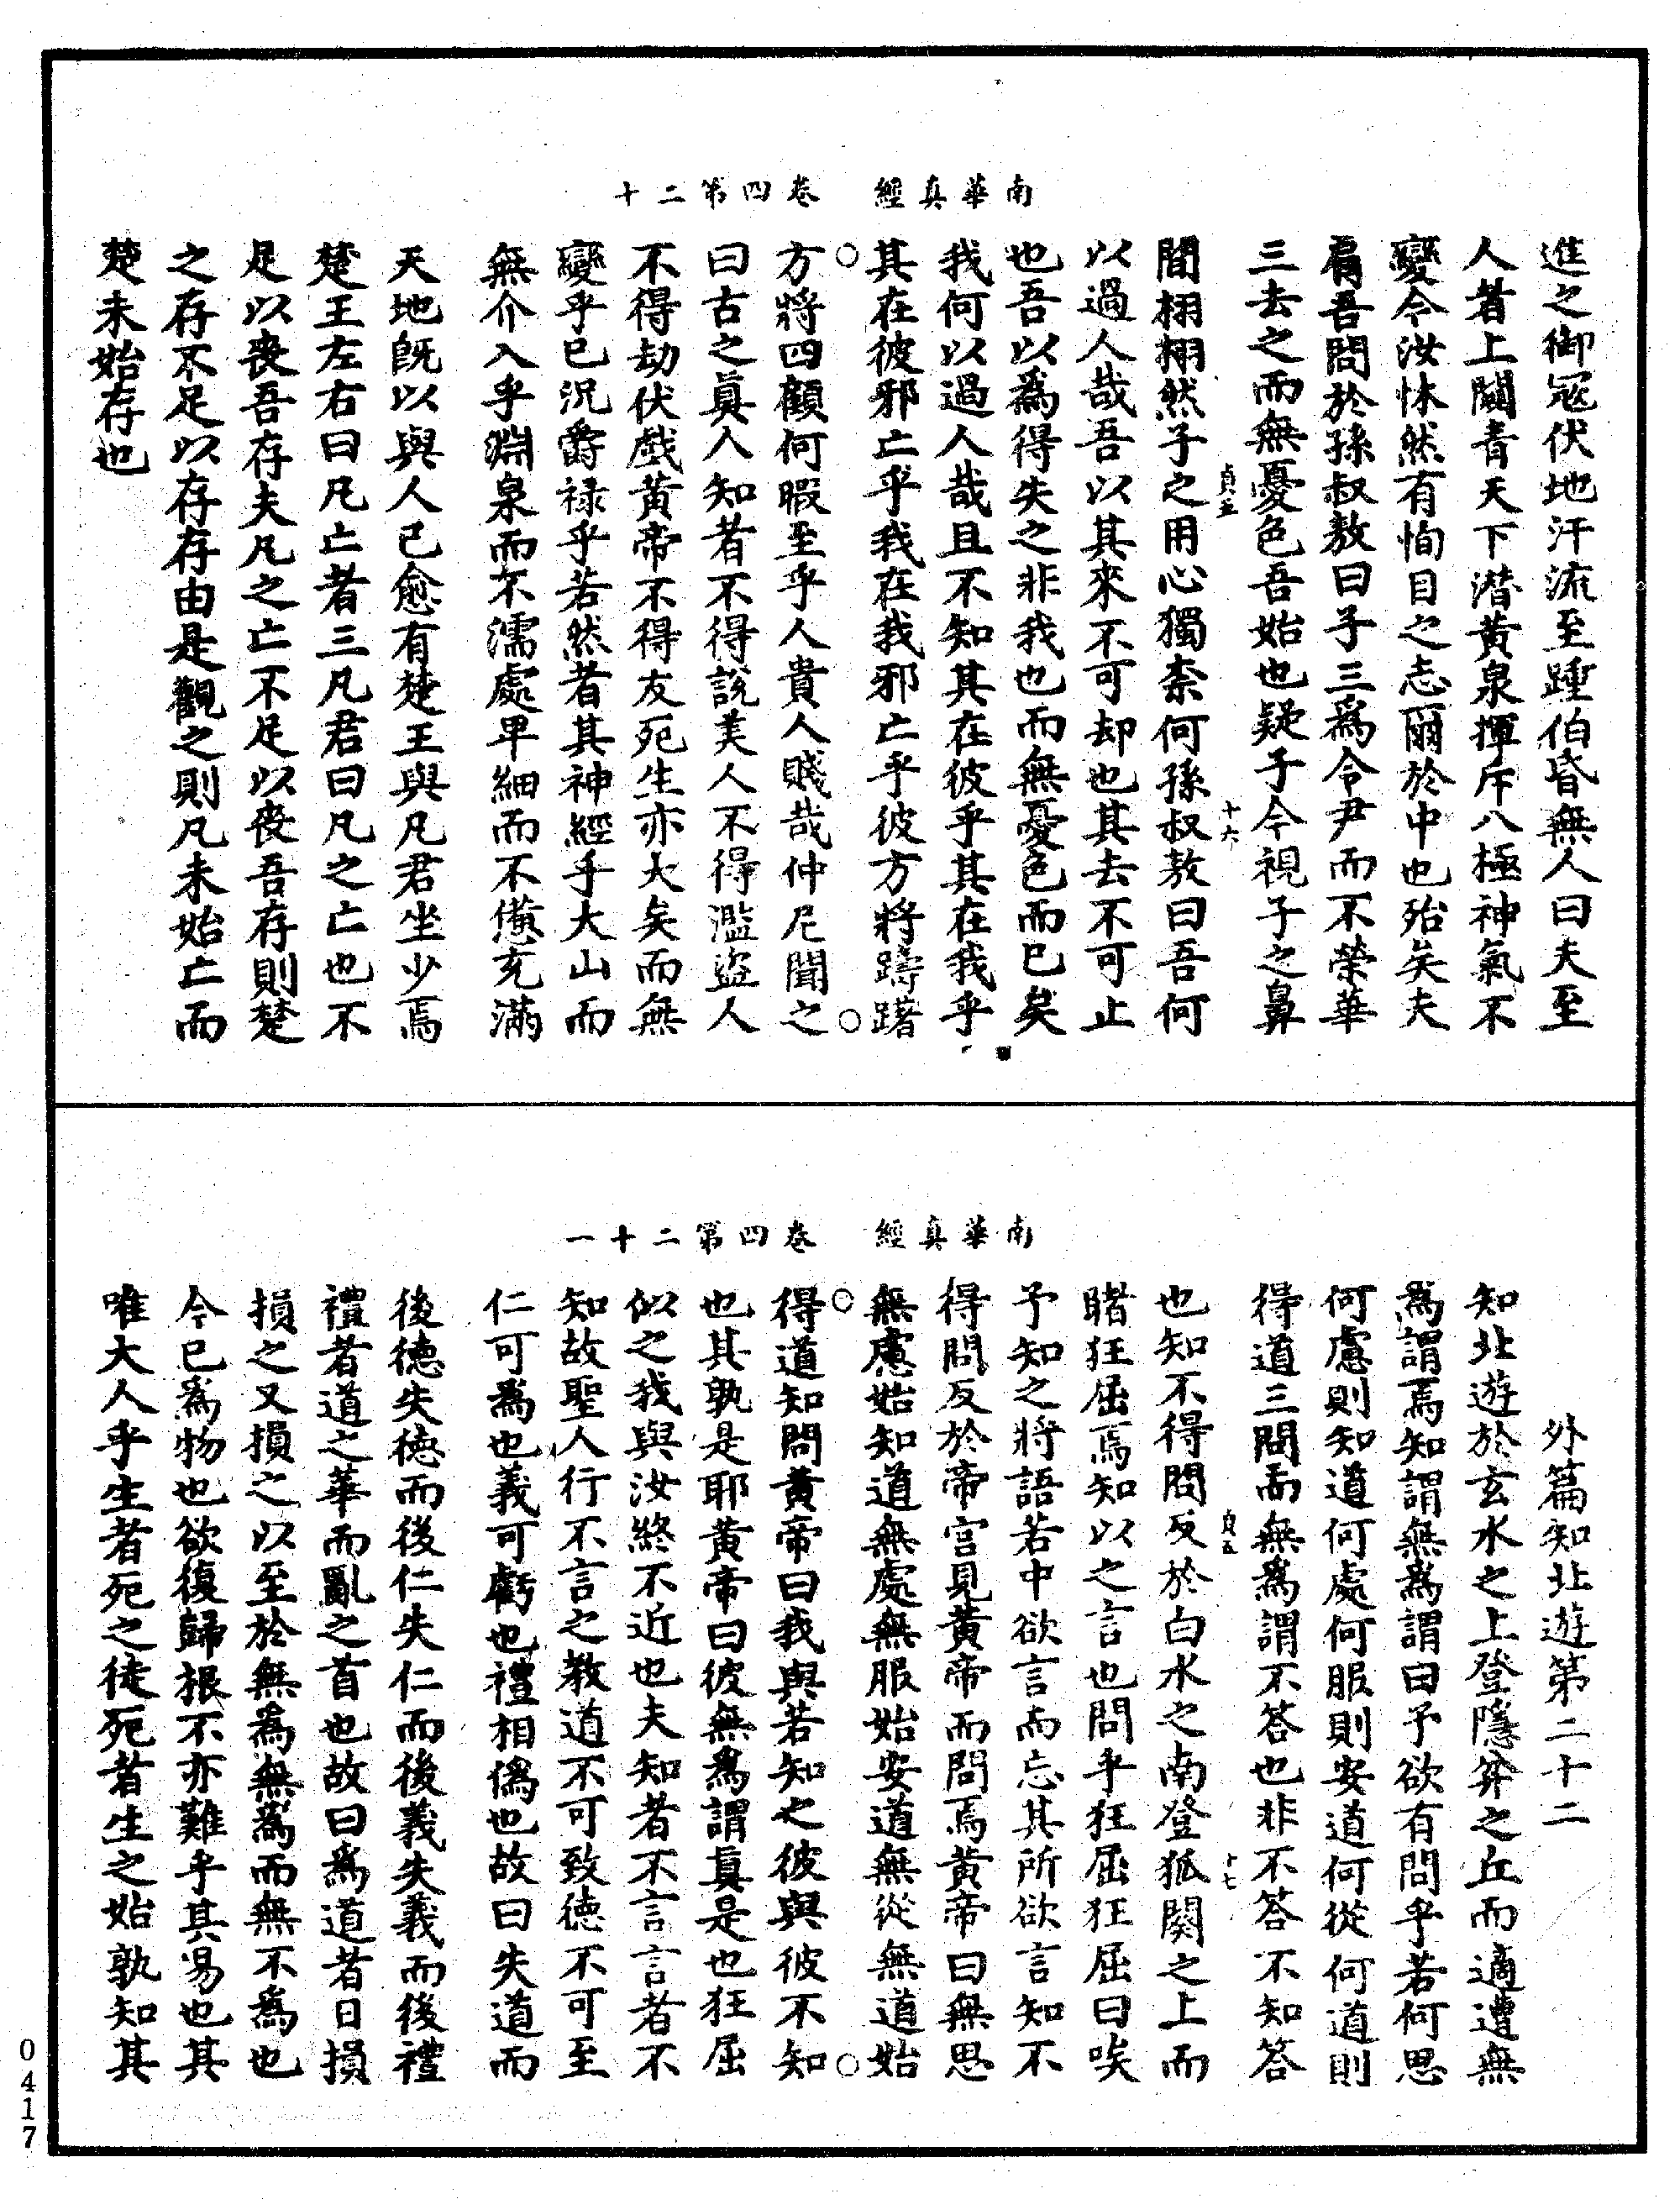 南華真經　卷四第二十
進之御寇伏地汗流至踵伯昏無人曰夫至
人者上闚青天下潛黄泉揮斥八極神氣不
變今汝怵然有恂目之志爾於中也殆矣夫
肩吾問於孫叔敖曰子三爲令尹而不榮華
三去之而無憂色吾始也疑子今視子之鼻
貞五　十六
間栩栩然子之用心獨柰何孫叔敖曰吾何
以過人哉吾以其來不可却也其去不可止
也吾以爲得失之非我也而無憂色而已矣
我何以過人哉且不知其在彼乎其在我乎
其在彼邪亡乎我在我邪亡乎彼方將躊躇
○　○
方將四顧何暇至乎人貴人賤哉仲尼聞之
曰古之真人知者不得說美人不得濫盜人
不得劫伏戲黄帝不得友死生亦大矣而無
變乎已況爵禄乎若然者其神經乎大山而
無介入乎淵泉而不濡處卑細而不憊充滿
天地既以與人己愈有楚王與凡君坐少焉
楚王左右曰凡亡者三凡君曰凡之亡也不
足以喪吾存夫凡之亡不足以喪吾存則楚
之存不足以存存由是觀之則凡未始亡而
楚未始存也
南華真經　卷四第二十一
外篇知北遊第二十二
知北遊於玄水之上登隱弅之丘而適遭無
爲謂焉知謂無爲謂曰予欲有問乎若何思
何慮則知道何處何服則安道何從何道則
得道三問而無爲謂不答也非不答不知答
貞五　十七
也知不得問反於白水之南登狐闋之上而
睹狂屈焉知以之言也問乎狂屈狂屈曰唉
予知之將語若中欲言而忘其所欲言知不
得問反於帝宫見黄帝而問焉黄帝曰無思
無慮始知道無處無服始安道無從無道始
○　○
得道知問黄帝曰我與若知之彼與彼不知
也其孰是耶黄帝曰彼無爲謂真是也狂屈
似之我與汝終不近也夫知者不言言者不
知故聖人行不言之教道不可致德不可至
仁可爲也義可虧也禮相僞也故曰失道而
後德失德而後仁失仁而後義失義而後禮
禮者道之華而亂之首也故曰爲道者日損
損之又損之以至於無爲無爲而無不爲也
今已爲物也欲復歸根不亦難乎其易也其
唯大人乎生者死之徒死者生之始孰知其
0417